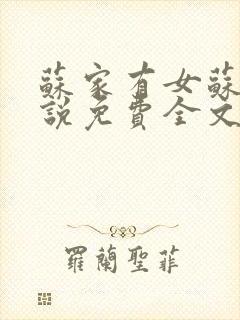 蘇家有女蘇
說免費全文
羅蘭聖菲